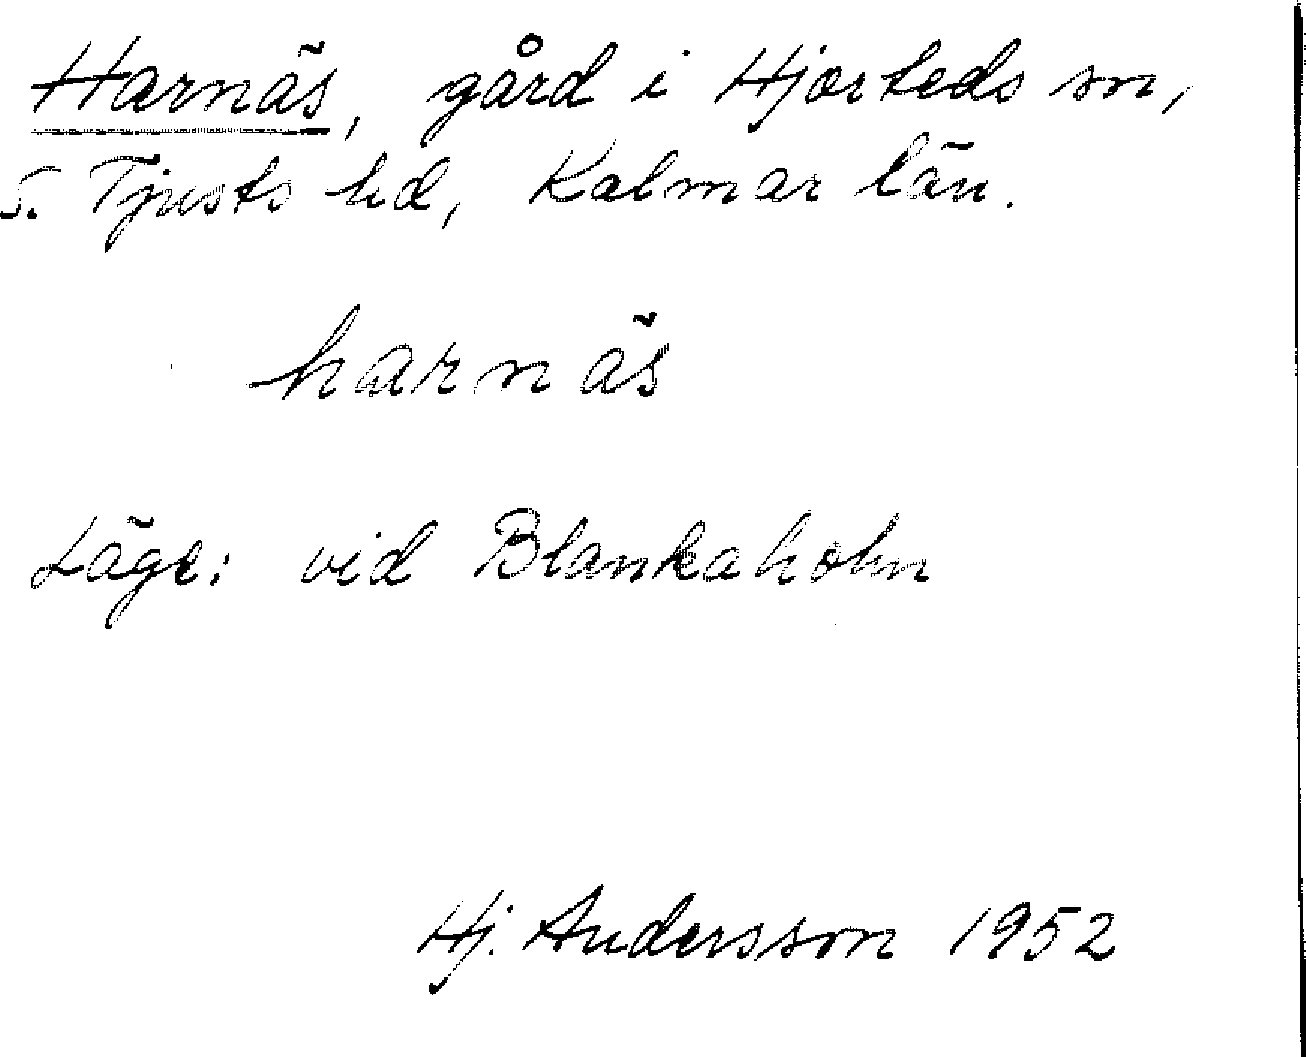 Harnäs, gård i Hjorteds sn,
S. Tjusts hd, Kalmar län.
harnäs
Läge: vid Blankaholm
Hj. Andersson 1952